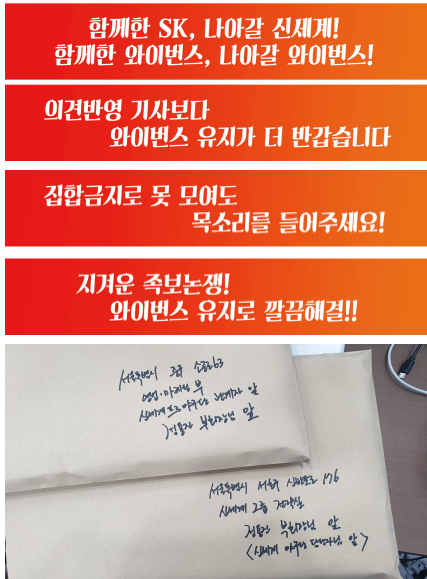 함께한 SK, 나아갈 신세계!
함께한 와이번스, 나아갈 와이번스!
의견반영 기사보다
와이번스 유지가 더 반갑습니다
집합금지로 못 모여도
목소리를 들어주세요!
지겨운 족보논쟁!
와이번스 유지로 깔끔해결!!
서울특별시 중구 소공로 63
영업·마케팅 부
신세계 프로야구단 관계자 앞
정용진 부회장님 앞
서울특별시 서초구 신반포로 176
신세계 2층 전략실
정용진 부회장님 앞
(신세계 야구단 담당자님 앞)